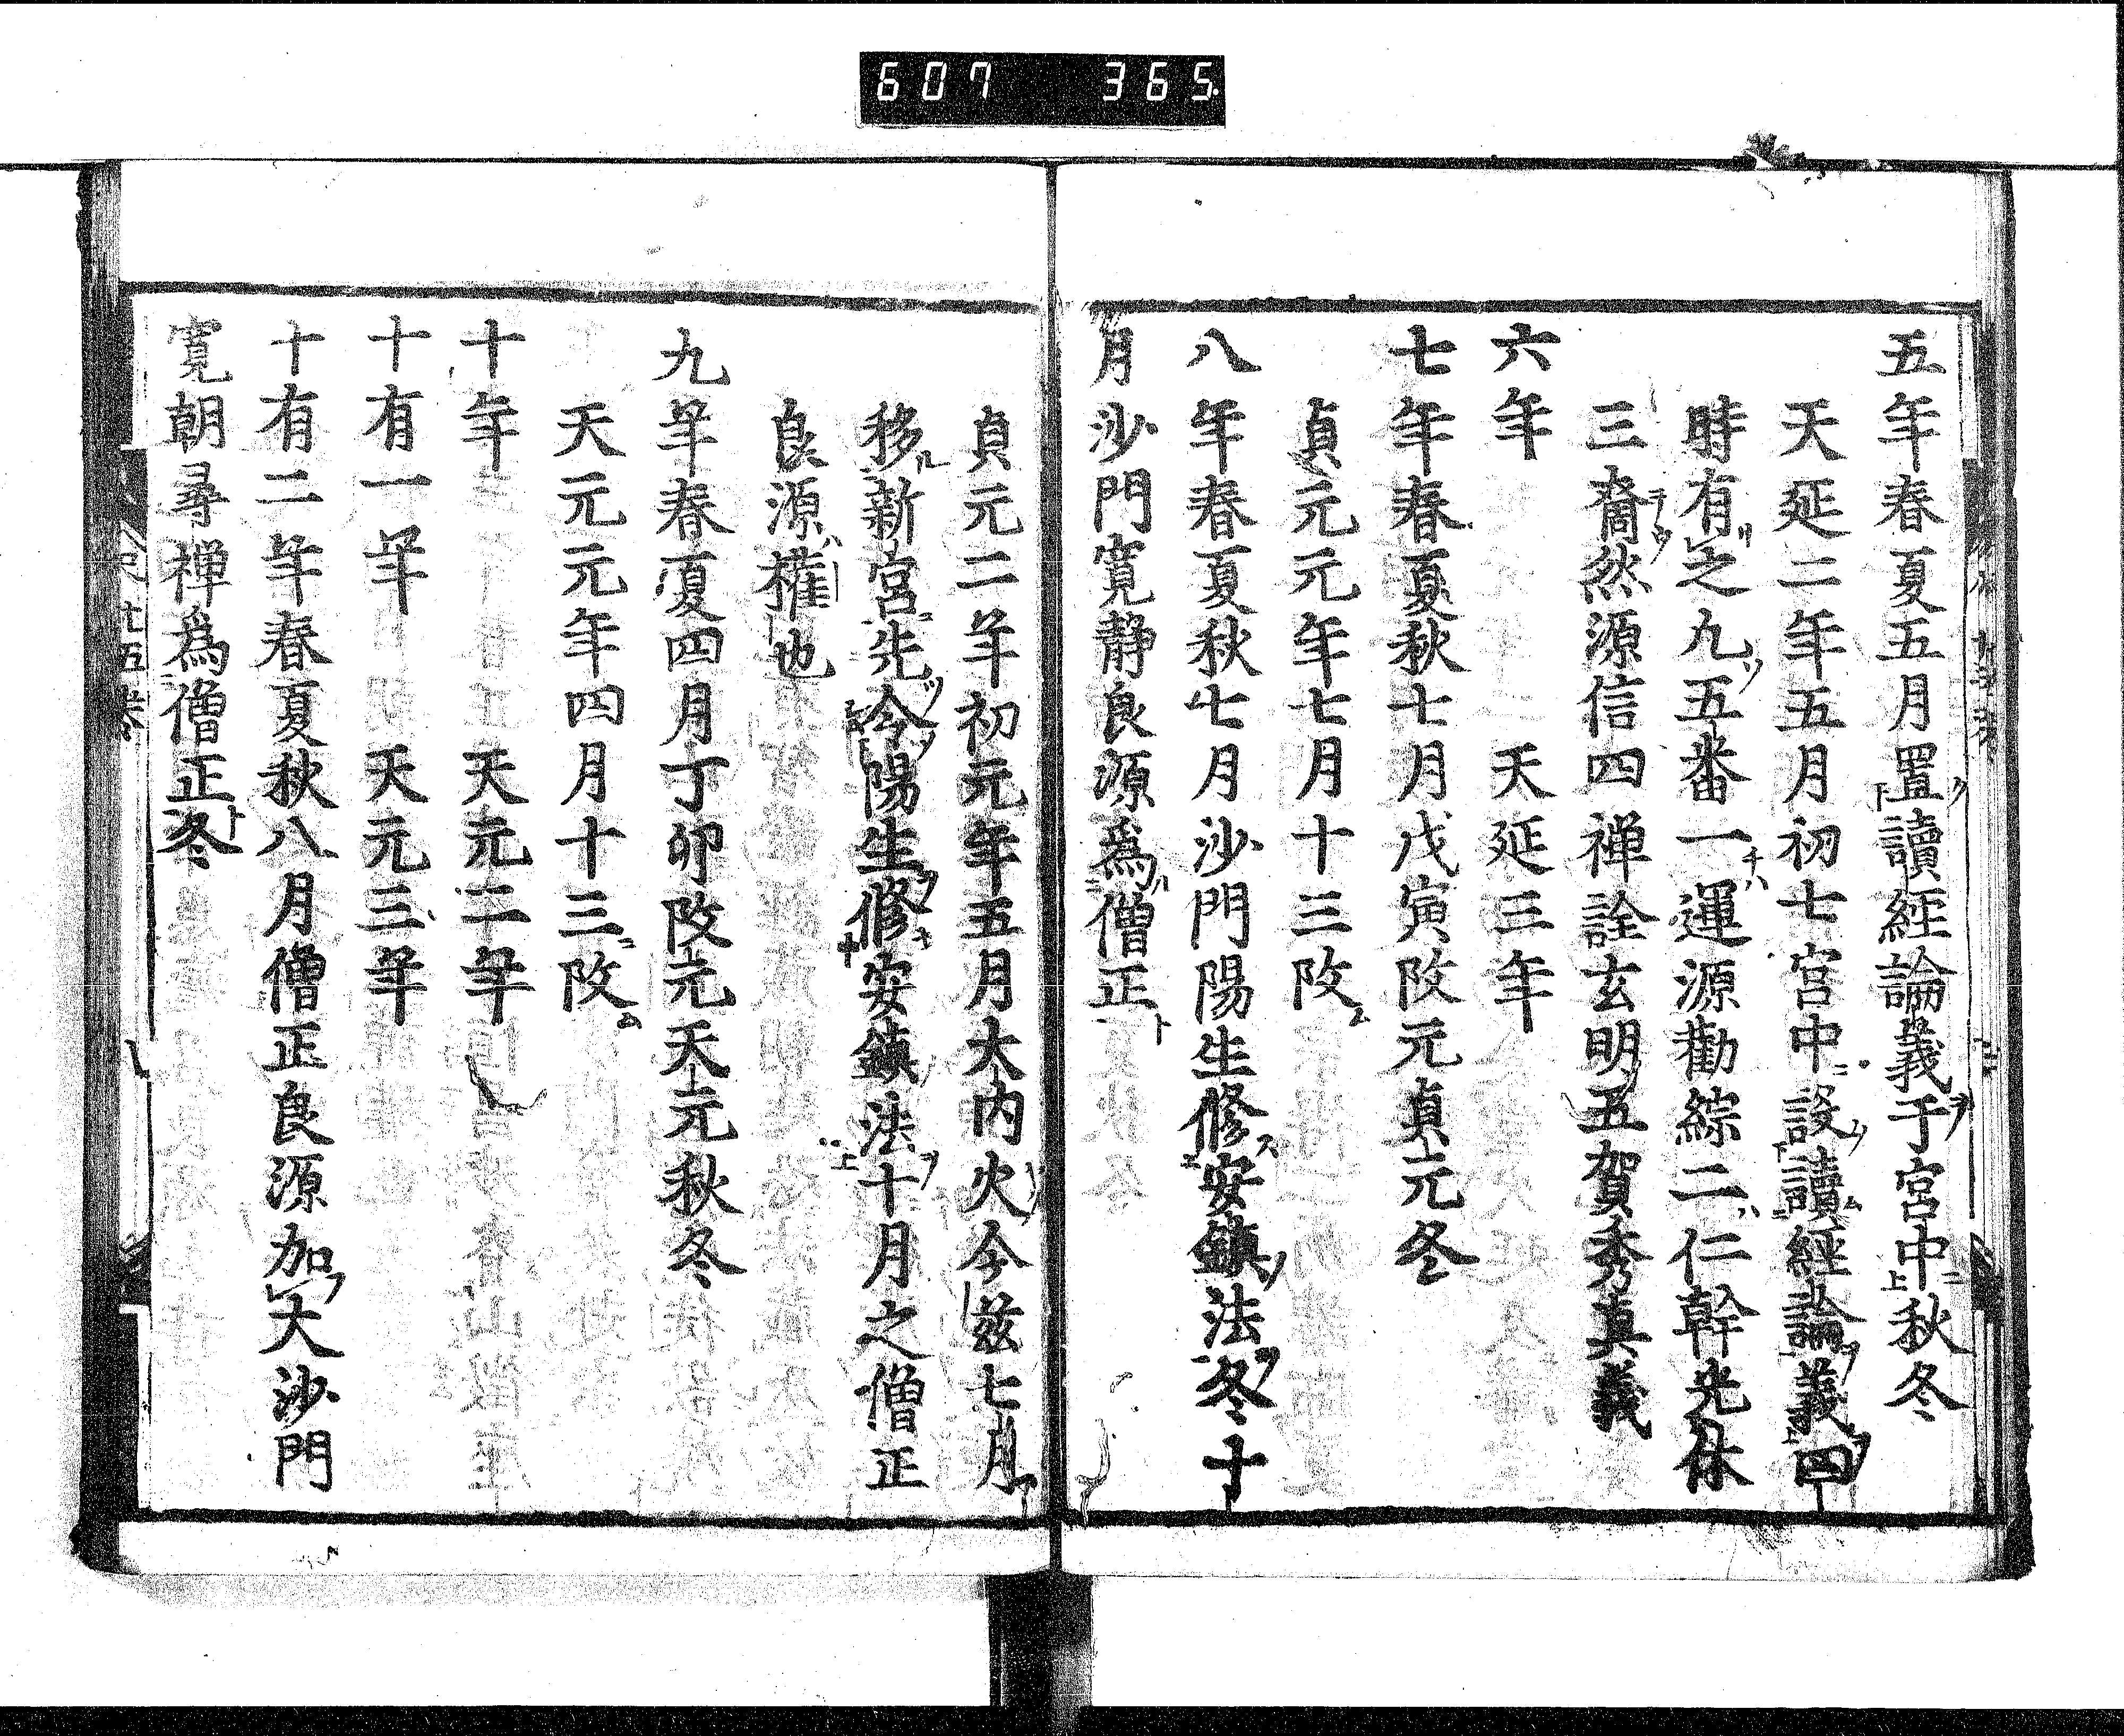 607 365
五年春夏五月置讀經論義于宮中秋冬
天延二年五月初七宮中設讀經論義四
時有之九五番一運源勸綜二仁幹光休
三奝然源信四禅詮玄明五賀秀真義
六年 天延三年
七年春夏秋七月戊寅改元貞元冬
貞元元年七月十三改
八年春夏秋七月沙門陽生修安鎮法冬十
月沙門寛静良源爲僧正
貞元二年初元年五月大内火今茲七月
移新宮先令陽生修安鎮法十月之僧正
良源権也
九年春夏四月丁卯改元天元秋冬
天元元年四月十三改
十年 天元二年
十有一年 天元三年
十有二年春夏秋八月僧正良源加大沙門
寛朝尋禅爲僧正冬